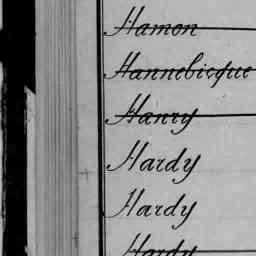 Hamon
Hannebicque
Hanry
Hardy
Hardy
Hardy